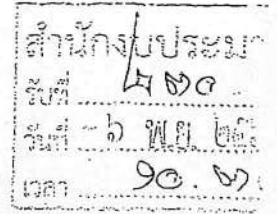 สำนักงบประมา
รับที่ ๘๓๐
วันที่ -๖ พ.ย. ๒๕
เวลา ๑๐.๓